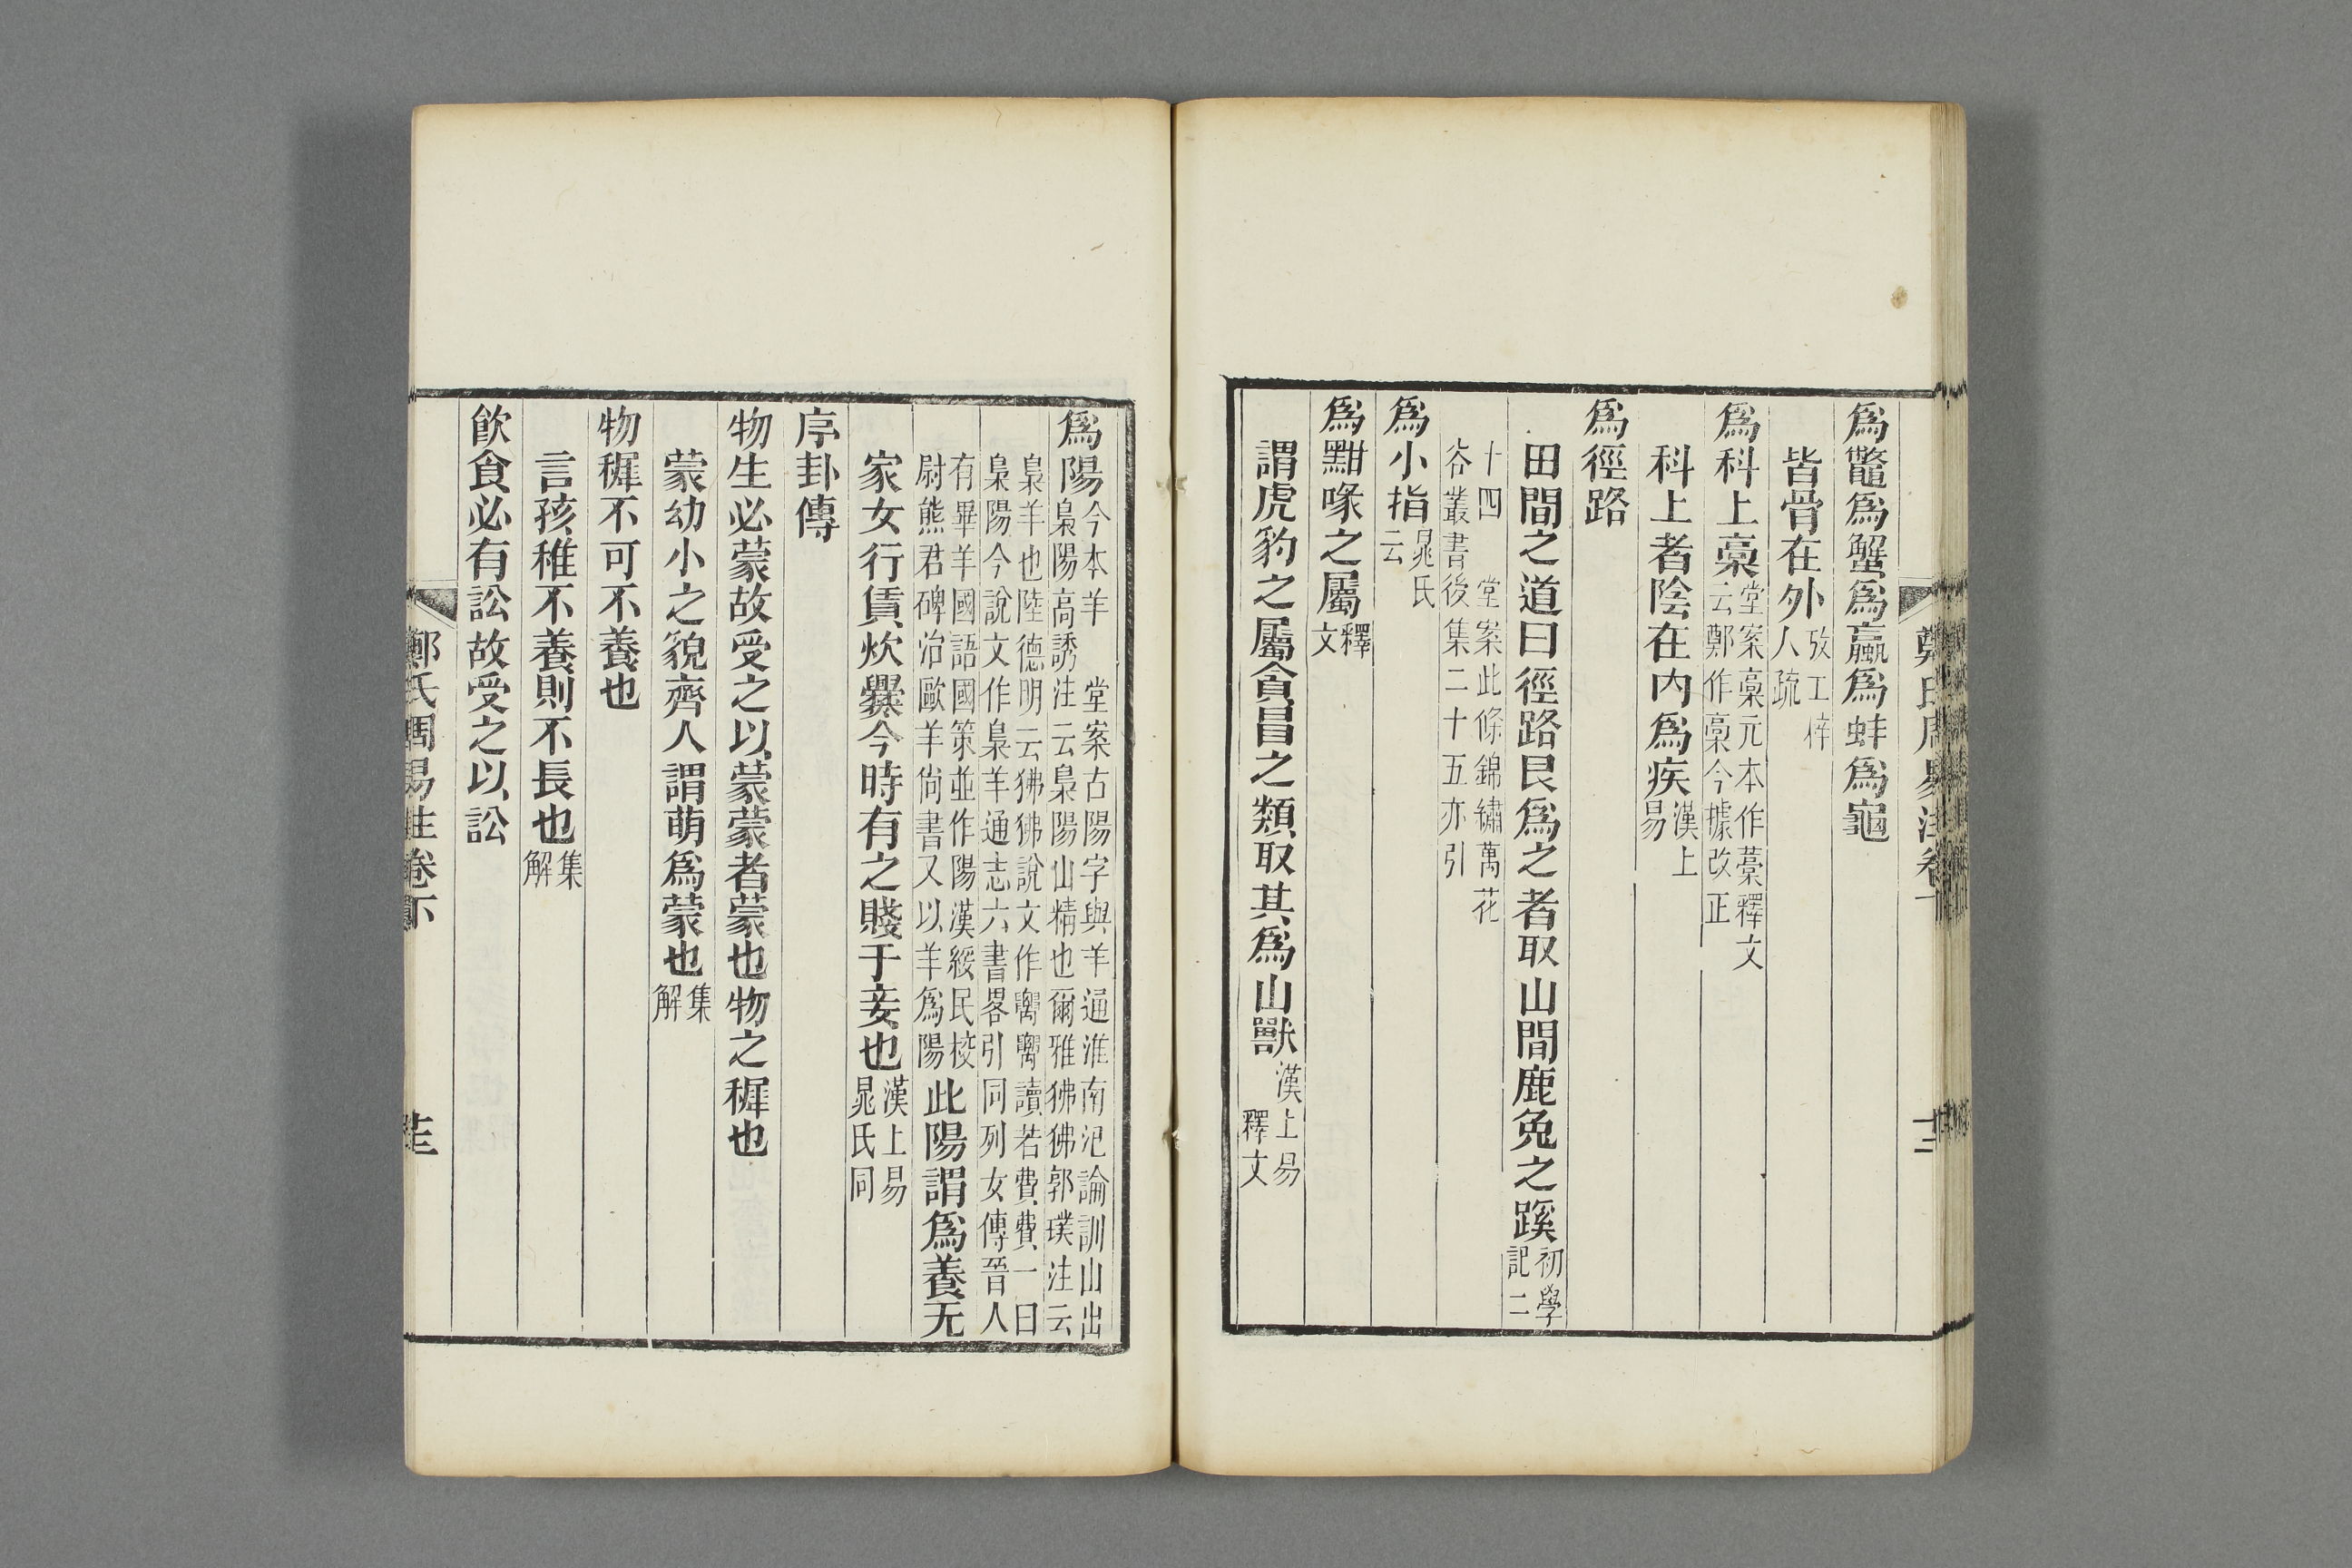 爲鼈爲蟹爲蠃爲蚌爲龜
皆骨在外攷工梓人疏
爲科上槀堂案槀元本作藁釋文云鄭作槀今據改正
科上者陰在內爲疾漢上易
爲徑路
田間之道曰徑路艮爲之者取山間鹿兔之蹊初學記二
十四　堂案此條錦繡萬花谷叢書後集二十五亦引
爲小指晁氏云
爲黚喙之屬釋文
謂虎豹之屬貪冒之類取其爲山獸漢上易釋文
爲陽今本羊　堂案古陽字與羊通淮南氾論訓山出梟陽高誘注云梟陽山精也爾雅狒狒郭璞注云
梟羊也陸德明云狒狒說文作𥝋𥝋讀若費費一曰梟陽今說文作梟羊通志六書畧引同列女傳晉人
有畢羊國語國策並作陽漢綏民校尉熊君碑治歐羊尙書又以羊爲陽此陽謂爲養无
家女行賃炊爨今時有之賤于妾也漢上易晁氏同
序卦傳
物生必蒙故受之以蒙蒙者蒙也物之穉也
蒙幼小之貌齊人謂萌爲蒙也集解
物穉不可不養也
言孩稚不養則不長也集解
飮食必有訟故受之以訟
鄭氏周易注卷下